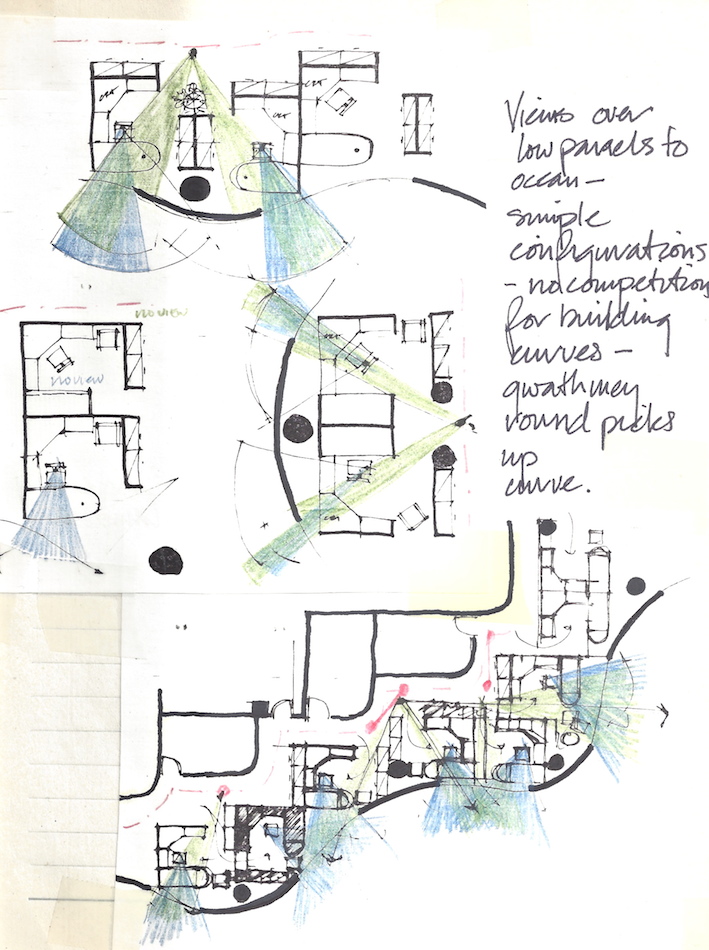 Views over
low panels to
ocean –
simple
configurations
– no competition
for building
curves –
gwathmey
round picks
up
curve.
no view
no view
CRT
CRT
CRT